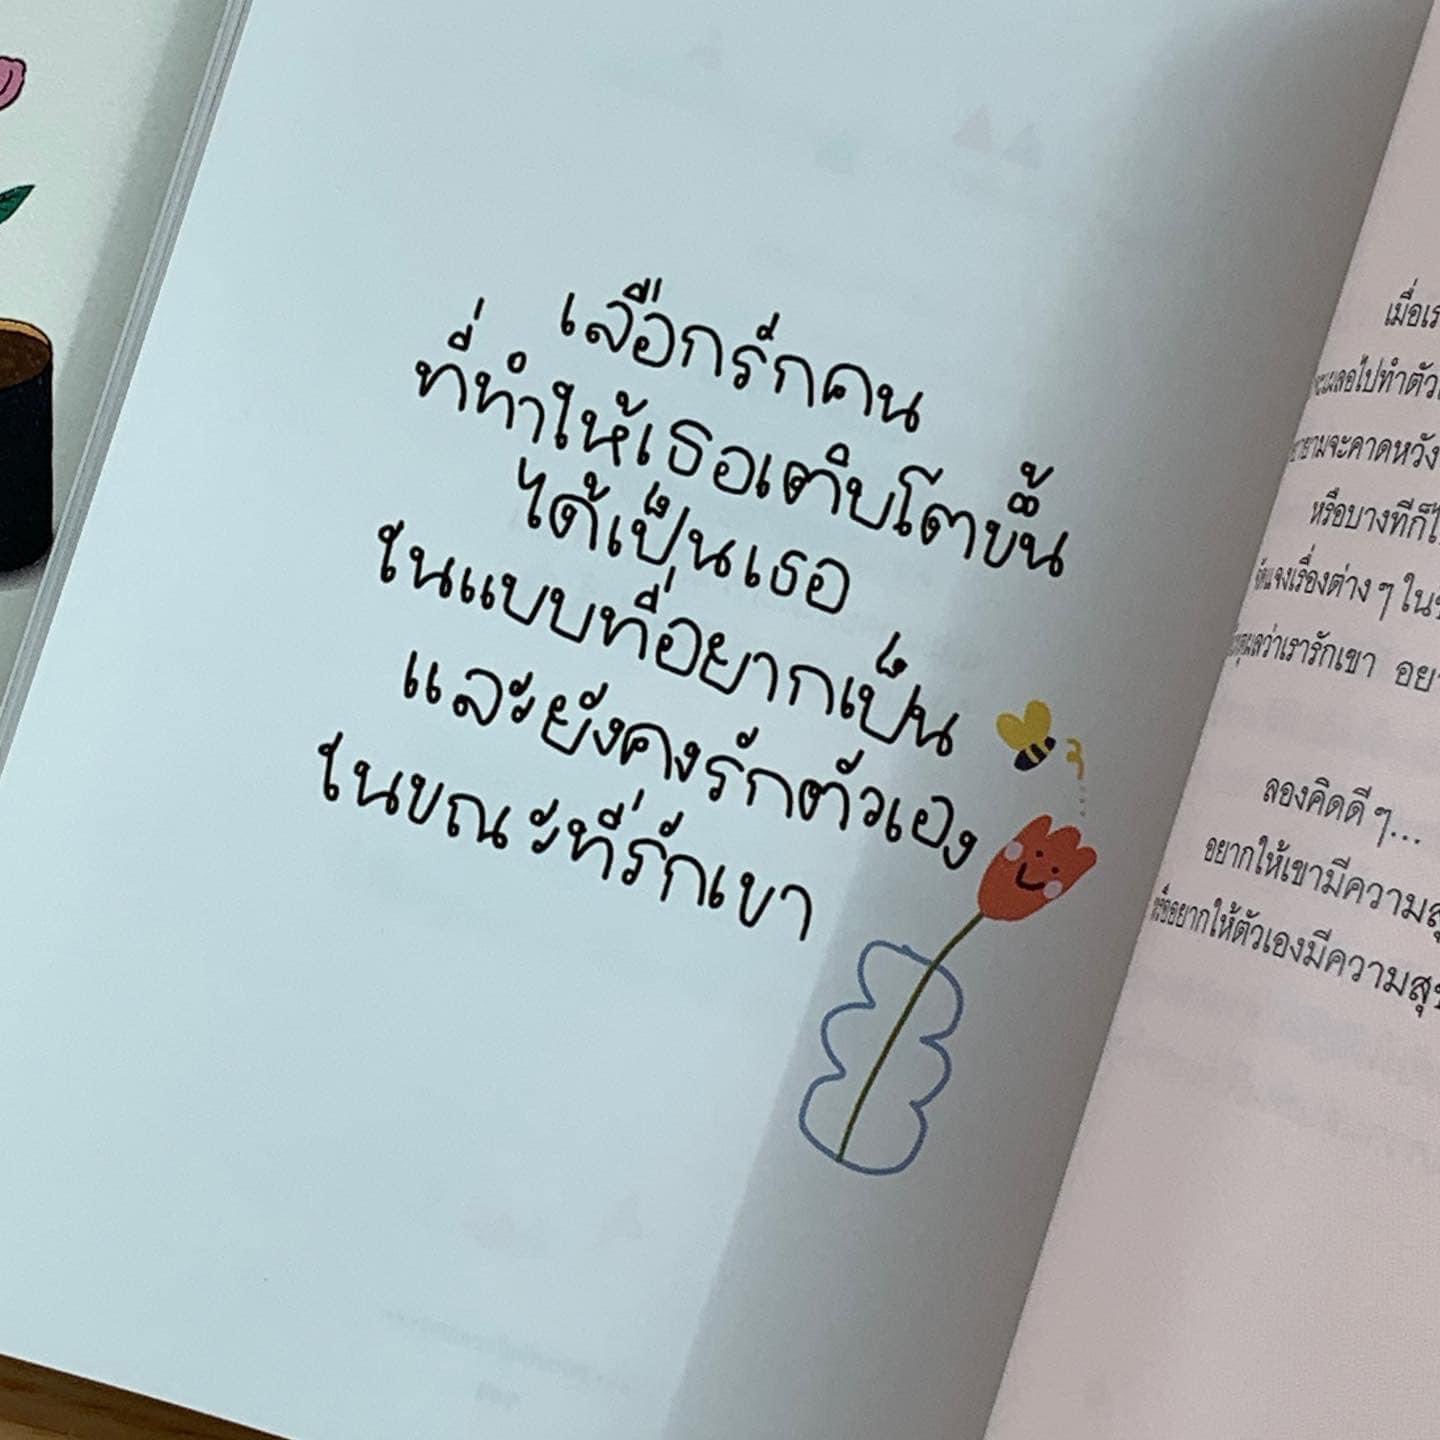 เลือกรักคน
ที่ทำให้เธอเติบโตขึ้น
ได้เป็นเธอ
ในแบบที่อยากเป็น
และยังคงรักตัวเอง
ในขณะที่รักเขา
เมื่อ
เผลอไปทำตัว
จะคาดหวัง
หรือบางทีก็
เรื่องต่าง ๆ ใน
ว่าเรารักเขา
ลองคิดดี ๆ...
อยากให้เขามีความ
อยากให้ตัวเองมีความ